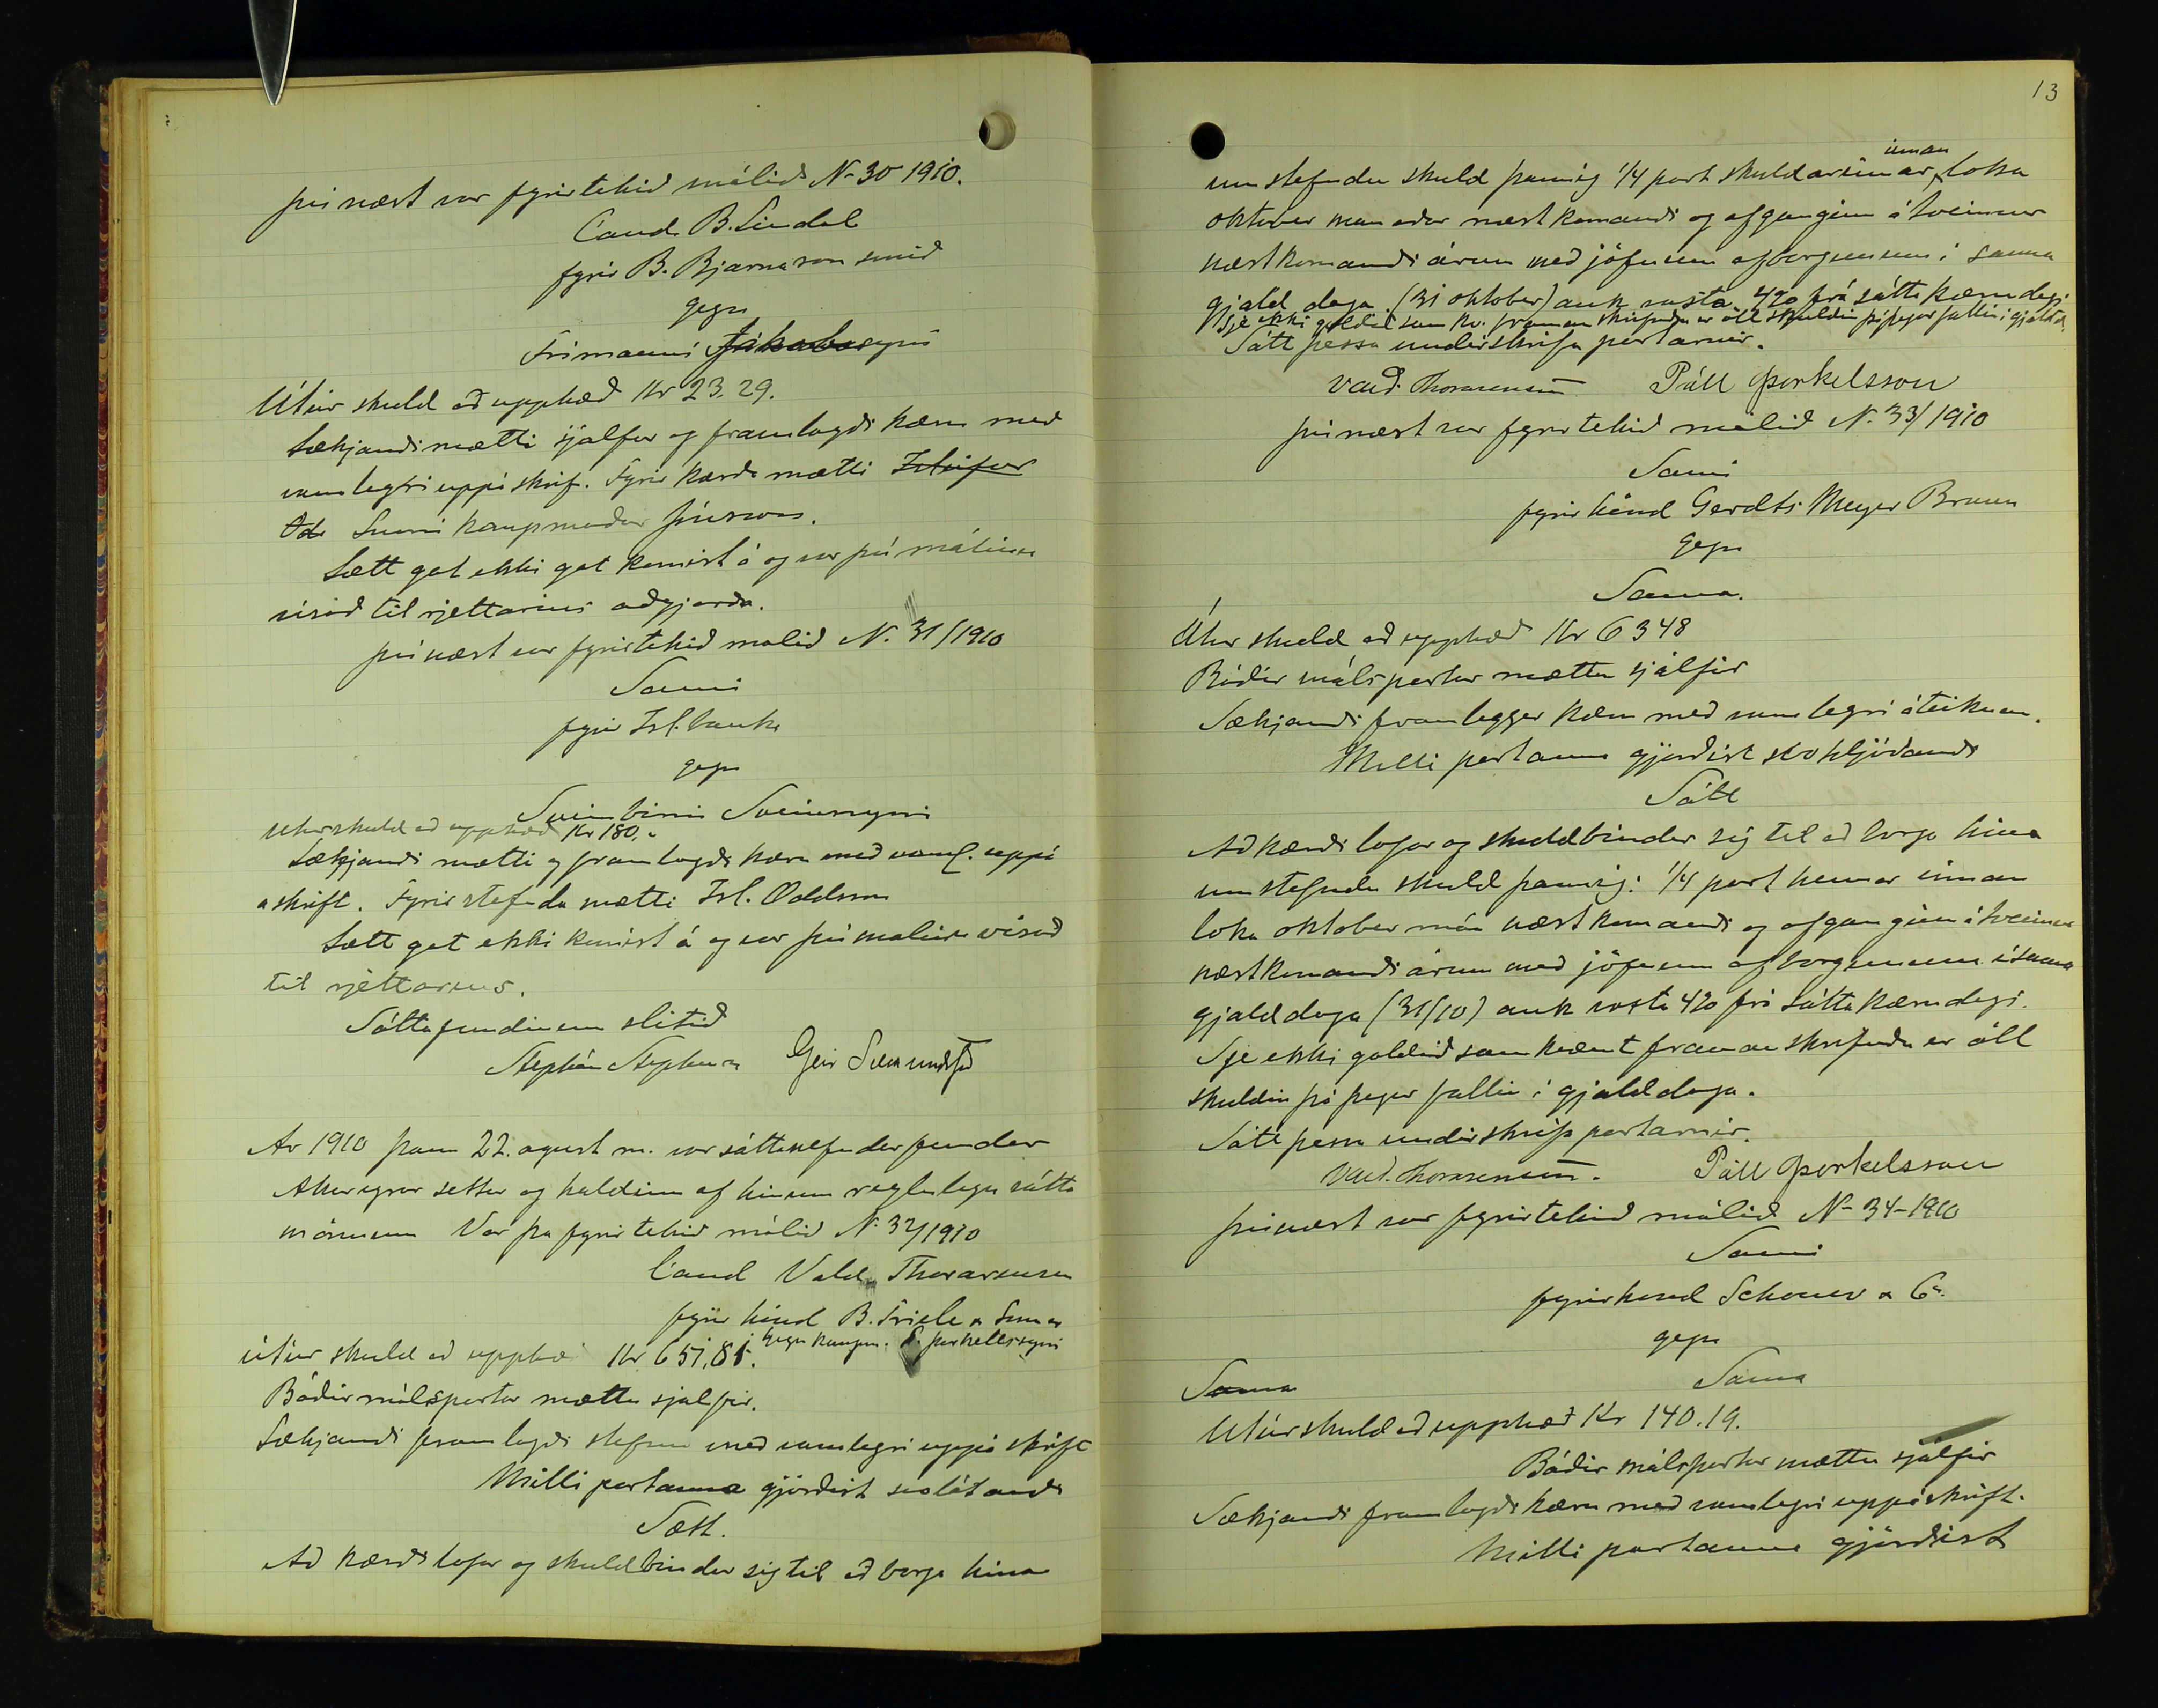 því næst var fyrirtekið málið N- 30 1910.
Cand. B. Líndal
fyrir B. Bjarnason smið
gegn
Frímanni Jakobssyni
Útúr skuld að upphæð Kr 23.29.
Sækjandi mætti sjálfur og framlagði kæru með
vanalegri uppáskrif. Fyrir kærða mætti
Odds kaupmaður
Sætt gat ekki gat komist á og var því málinu
vísað til rjettarins aðgjorða.
því næst var fyrirtekið malið N. 31/1910
Sami
fyrir Ísl. banka
gegn
Sveinbirni Sveinssyni
Útúr skuld að upphæð Kr 180,-
Sækjandi mætti og framlagði kæru með vanal. uppá
askrift. Fyrir stefnda mætti Ísl. Oddsson
Sætt gat ekki komist á og var því malinu vísað
til rjettarins.
Sáttafundinum slitið
Stephán Stephensen Geir Sæmundss
Ar 1910 þann 22. agust m. var sáttanefndarfundur
Akureyrar settur og haldinn af hinum reglulegu sátta
mönnum Var þa fyrirtekið málið N. 32/1910
Cand Vald. Thorarensen
fyrir hönd B. Friele & Sønner
gegn kaupm. P. Þorkellssyni
útúr skuld að upphæ Kr 651.81.
Báðir málspartar mættu sjálfir.
Sækjandi framlagði stefnu með vanalegri uppáskrift
Milli partanna gjörðist svolátandi
Sætt.
Að kærði lofar og skuldbindur sig til að borga hina
13
umstefndu skuld þannig 1/4 part skuldarinnar innan loka
oktober manaðar næstkomandi og afganginn á tveimur
næstkomandi árum með jöfnum afborgunum í sama
gjalddaga (31 oktober) auk vaxta 4% frá sáttakærudegi
Sje ekki goldið samkv. framanskrifuðu er öll skuldin þá þegar fallin í gjaldd.
Sátt þessa undirskrifa partarnir.
Vald. Thorarensen Páll Þorkelsson
því næst var fyrirtekið málið N. 33/1910
Sami
fyrir hönd Gerdts Meyer Bruun
gegn
Sama.
Útúr skuld að upphæð Kr 6348
Báðir málspartar mættu sjálfir
Sækjandi framlegger kæru með vanalegri áteiknun.
Milli partanna gjörðist svohljóðandi
Sátt
Að kærði lofar og skuldbindur sig til að borga hina
umstefndu skuld þannig: 1/4 part hennar innan
loka oktober mán næstkomandi og afganginn á tveimur
næstkomandi árum með jöfnum afborgunum í sama
gjalddaga (31/10) auk vaxta 4% frá sáttakærudegi.
Sje ekki goldið samkvæmt framanskrifuðu er öll
skuldin þá þegar fallin í gjalddaga.
Sátt þessa undirskrifa partarnir.
Vald. Thorarensen. Páll Þorkelsson
því næst var fyrirtekið málið N- 34-1910
Sami
fyrir hönd Schouer & Co.
gegn
Sama Sama
Útúr skuld að upphæð Kr 140.19.
Báðir málspartar mættu sjálfir
Sækjandi framlagði kæru með vanalegri uppáskrift.
Milli partanna gjörðist